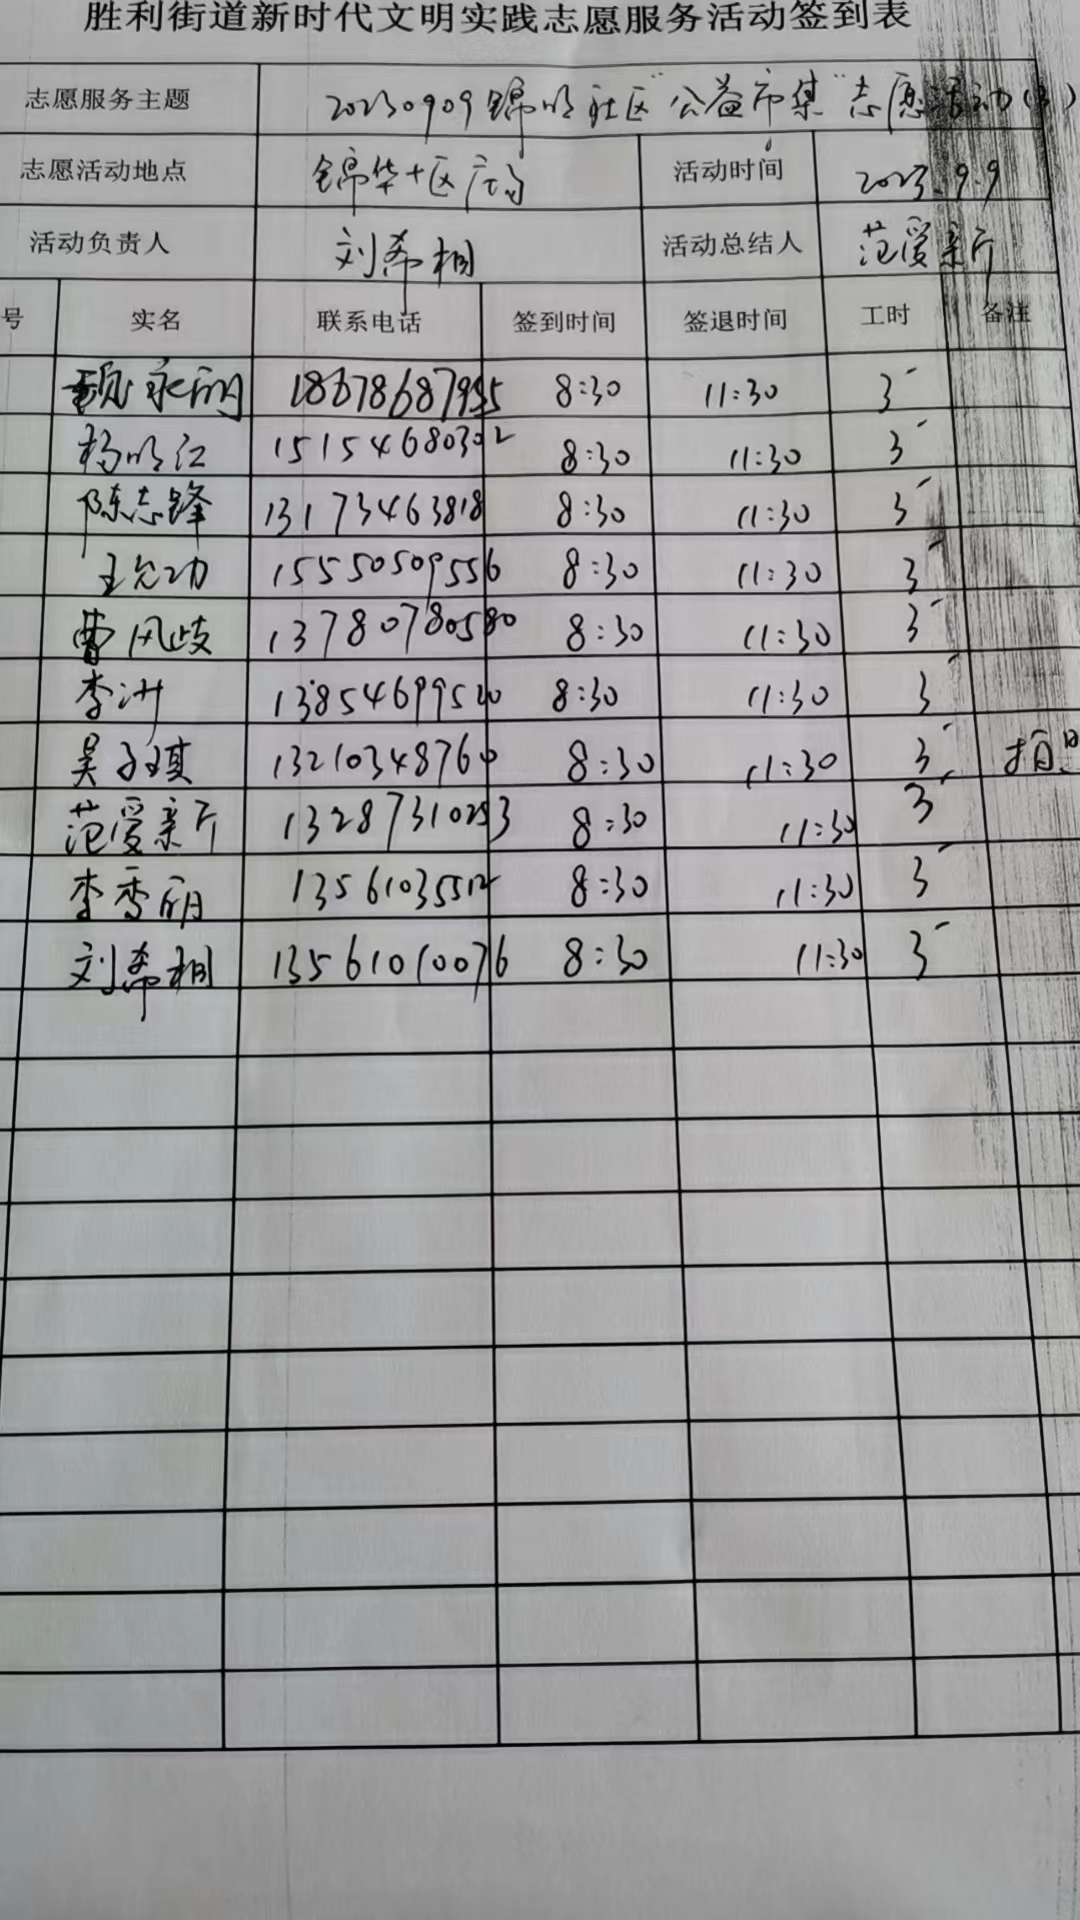 胜利街道新时代文明实践志愿服务活动签到表
志愿服务主题 20230909锦明社区“公益市集”志愿活动
志愿活动地点 锦华十区广场 活动时间 2023.9.9
活动负责人 刘希桐 活动总结人 范爱新
号 实名 联系电话 签到时间 签退时间 工时 备注
永丽 8:30 11:30 3
杨明江 15154680302 8:30 11:30 3
陈志锋 13173463818 8:30 11:30 3
王允功 15550509556 8:30 11:30 3
曹风岐 13780780580 8:30 11:30 3
李洲 13854699520 8:30 11:30 3
吴子琪 13210348760 8:30 11:30 3
范爱新 8:30 11:30 3
李秀丽 8:30 11:30 3
刘希桐 13561010076 8:30 11:30 3